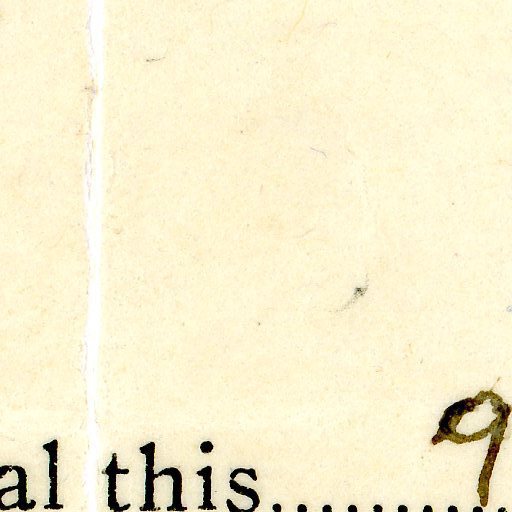 al this.......... 9